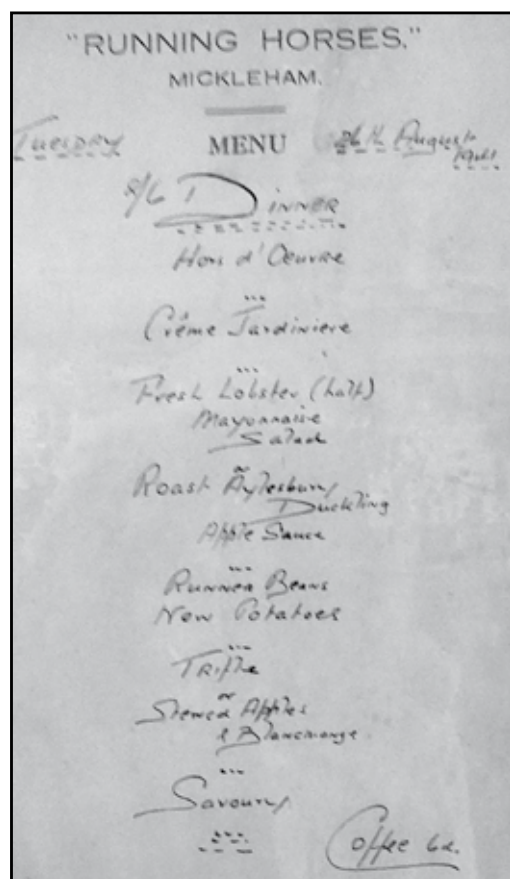 "RUNNING HORSES."
MICKLEHAM.
Tuesday MENU 26th August
1941
8/6 DINNER
Hors d'Oeuvre
Crême Jardiniere
Fresh Lobster (half)
Mayonnaise
Salad
or
Roast Aylesbury
Duckling
Apple Sauce
Runner Beans
New Potatoes
Trifle
or
Stewed Apples
& Blancmange
Savoury
Coffee 6d.